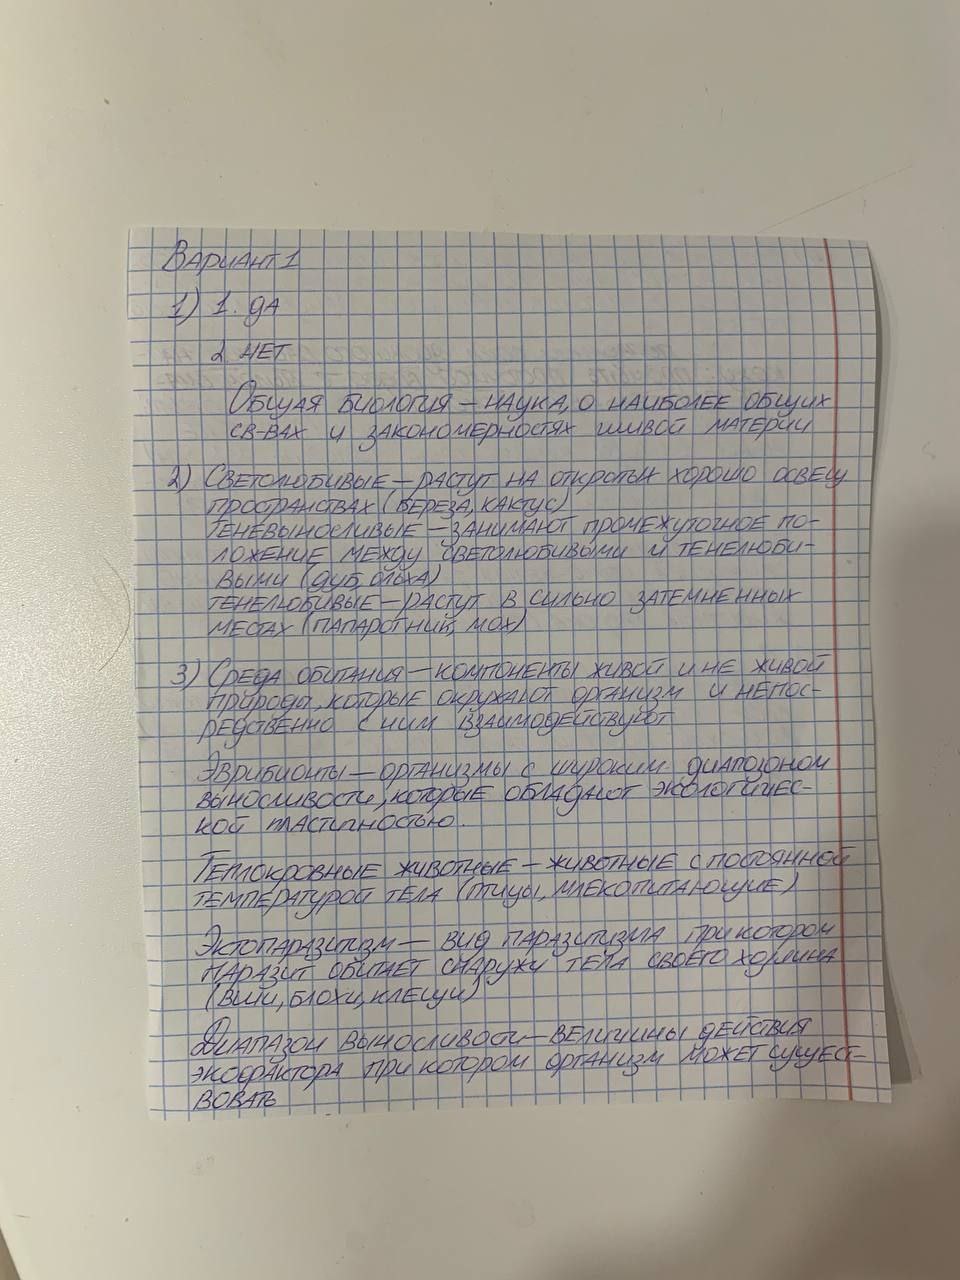 Вариант 1
1) 1. да
2. нет
Общая биология – наука, о наиболее общих
св-вах и закономерностях живой материи
2) Светолюбивые – растут на открытых хорошо освещ
пространствах (береза, кактус)
Теневыносливые – занимают промежуточное по-
ложение между светолюбивыми и тенелюби-
выми (дуб, ольха)
Тенелюбивые – растут в сильно затемненных
местах (папаротник, мох)
3) Среда обитания – компоненты живой и не живой
природы, которые окружают организм и непос-
редственно с ним взаимодействуют
Эврибионты – организмы с широким диапозоном
выносливости, которые обладают экологичес-
кой пластичностью.
Теплокровные животные – животные с постоянной
температурой тела (птицы, млекопитающие)
Эктопаразитизм – вид паразитизма при котором
паразит обитает снаружу тела своего хозяина
(вши, блохи, клещи)
Диапазон выносливости – величины действия
экофактора при котором организм может сущест-
вовать